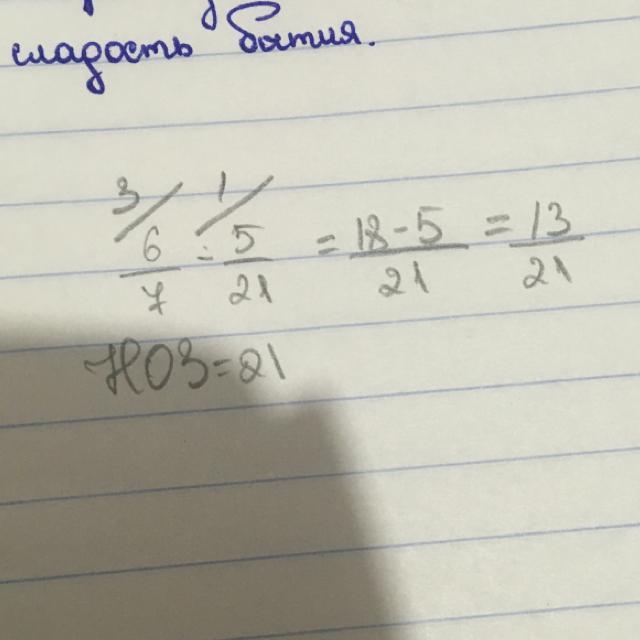 сладость бытия.
3/ 1/
6/7 - 5/21 = 18-5/21 = 13/21
НОЗ=21